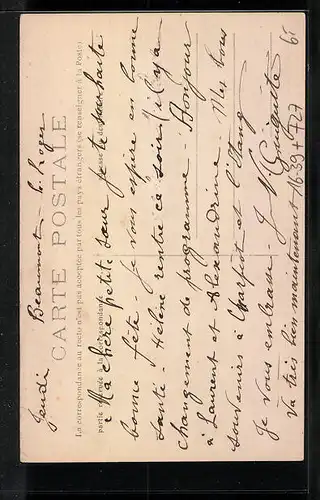 Jeudi Beaumont - le - Roger
CARTE POSTALE
La correspondance au recto n'est pas acceptée par tous les pays étrangers (se renseigner à la Poste)
partie réservée à la correspondance
Ma chère petite sœur je te souhaite
bonne fête - je vous espère en bonne
santé - Hélène rentre ce soir (il y a
changement de programme - Bonjour
à Laurent et Alexandrine. Mes bons
souvenirs à Charfrot et l'Etang
Je vous embrasse J
va très bien maintenant 16.59 + 727 bt